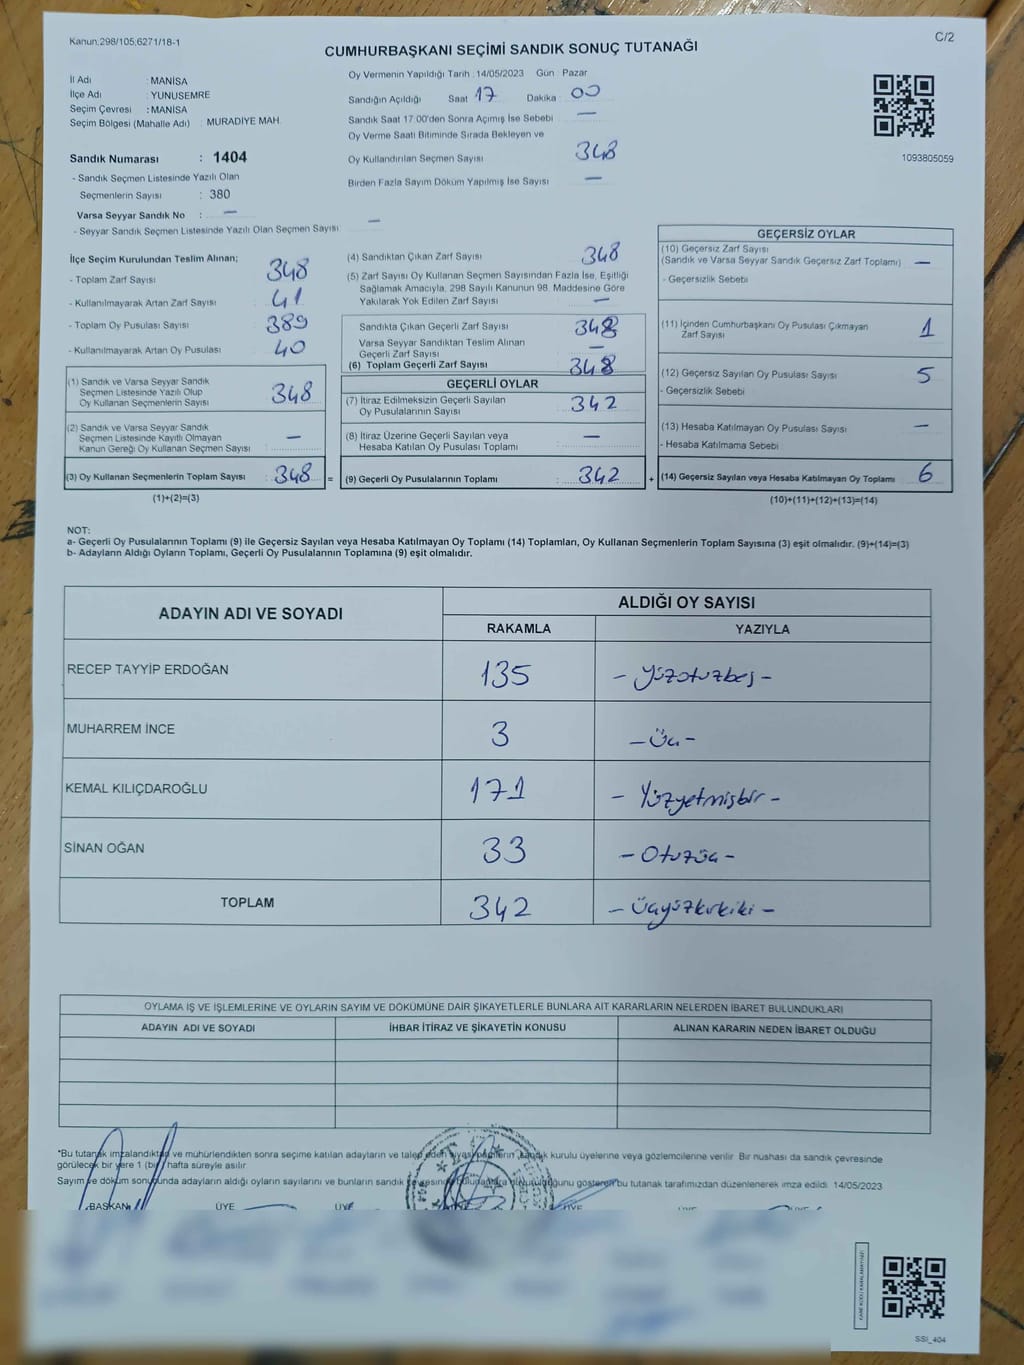 Kanun:298/105;6271/18-1
C/2
CUMHURBAŞKANI SEÇİMİ SANDIK SONUÇ TUTANAĞI
İl Adı : MANİSA
İlçe Adı : YUNUSEMRE
Seçim Çevresi : MANİSA
Seçim Bölgesi (Mahalle Adı) : MURADİYE MAH.
Sandık Numarası : 1404
- Sandık Seçmen Listesinde Yazılı Olan
Seçmenlerin Sayısı : 380
Varsa Seyyar Sandık No : —
- Seyyar Sandık Seçmen Listesinde Yazılı Olan Seçmen Sayısı —
Oy Vermenin Yapıldığı Tarih : 14/05/2023 Gün : Pazar
Sandığın Açıldığı Saat 17 Dakika : 00
Sandık Saat 17:00'den Sonra Açımış İse Sebebi —
Oy Verme Saati Bitiminde Sırada Bekleyen ve
Oy Kullandırılan Seçmen Sayısı 348
Birden Fazla Sayım Döküm Yapılmış İse Sayısı —
1093805059
İlçe Seçim Kurulundan Teslim Alınan;
- Toplam Zarf Sayısı 348
- Kullanılmayarak Artan Zarf Sayısı 41
- Toplam Oy Pusulası Sayısı 389
- Kullanılmayarak Artan Oy Pusulası 40
(1) Sandık ve Varsa Seyyar Sandık
Seçmen Listesinde Yazılı Olup
Oy Kullanan Seçmenlerin Sayısı 348
(2) Sandık ve Varsa Seyyar Sandık
Seçmen Listesinde Kayıtlı Olmayan
Kanun Gereği Oy Kullanan Seçmen Sayısı —
(3) Oy Kullanan Seçmenlerin Toplam Sayısı : 348 =
(1)+(2)=(3)
(4) Sandıktan Çıkan Zarf Sayısı 348
(5) Zarf Sayısı Oy Kullanan Seçmen Sayısından Fazla İse, Eşitliği
Sağlamak Amacıyla, 298 Sayılı Kanunun 98. Maddesine Göre
Yakılarak Yok Edilen Zarf Sayısı —
Sandıkta Çıkan Geçerli Zarf Sayısı 348
Varsa Seyyar Sandıktan Teslim Alınan
Geçerli Zarf Sayısı —
(6) Toplam Geçerli Zarf Sayısı 348
GEÇERLİ OYLAR
(7) İtiraz Edilmeksizin Geçerli Sayılan
Oy Pusulalarının Sayısı 342
(8) İtiraz Üzerine Geçerli Sayılan veya
Hesaba Katılan Oy Pusulası Toplamı —
(9) Geçerli Oy Pusulalarının Toplamı : 342 +
GEÇERSİZ OYLAR
(10) Geçersiz Zarf Sayısı
(Sandık ve Varsa Seyyar Sandık Geçersiz Zarf Toplamı) —
- Geçersizlik Sebebi
(11) İçinden Cumhurbaşkanı Oy Pusulası Çıkmayan
Zarf Sayısı 1
(12) Geçersiz Sayılan Oy Pusulası Sayısı 5
- Geçersizlik Sebebi
(13) Hesaba Katılmayan Oy Pusulası Sayısı —
- Hesaba Katılmama Sebebi
(14) Geçersiz Sayılan veya Hesaba Katılmayan Oy Toplamı 6
(10)+(11)+(12)+(13)=(14)
NOT:
a- Geçerli Oy Pusulalarının Toplamı (9) ile Geçersiz Sayılan veya Hesaba Katılmayan Oy Toplamı (14) Toplamları, Oy Kullanan Seçmenlerin Toplam Sayısına (3) eşit olmalıdır. (9)+(14)=(3)
b- Adayların Aldığı Oyların Toplamı, Geçerli Oy Pusulalarının Toplamına (9) eşit olmalıdır.
ADAYIN ADI VE SOYADI
ALDIĞI OY SAYISI
RAKAMLA YAZIYLA
RECEP TAYYİP ERDOĞAN 135 - Yüzotuzbeş -
MUHARREM İNCE 3 - Üç -
KEMAL KILIÇDAROĞLU 171 - Yüzyetmişbir -
SİNAN OĞAN 33 - Otuzüç -
TOPLAM 342 - Üçyüzkırkiki -
OYLAMA İŞ VE İŞLEMLERİNE VE OYLARIN SAYIM VE DÖKÜMÜNE DAİR ŞİKAYETLERLE BUNLARA AİT KARARLARIN NELERDEN İBARET BULUNDUKLARI
ADAYIN ADI VE SOYADI İHBAR İTİRAZ VE ŞİKAYETİN KONUSU ALINAN KARARIN NEDEN İBARET OLDUĞU
*Bu tutanak imzalandıktan ve mühürlendikten sonra seçime katılan adayların ve talep eden siyasi partilerin, sandık kurulu üyelerine veya gözlemcilerine verilir. Bir nushası da sandık çevresinde
görülecek bir yere 1 (bir) hafta süreyle asılır.
Sayım ve döküm sonucunda adayların aldığı oyların sayılarını ve bunların sandık bu tutanak tarafımızdan düzenlenerek imza edildi. 14/05/2023
BAŞKAN ÜYE ÜYE ÜYE
SSİ_404